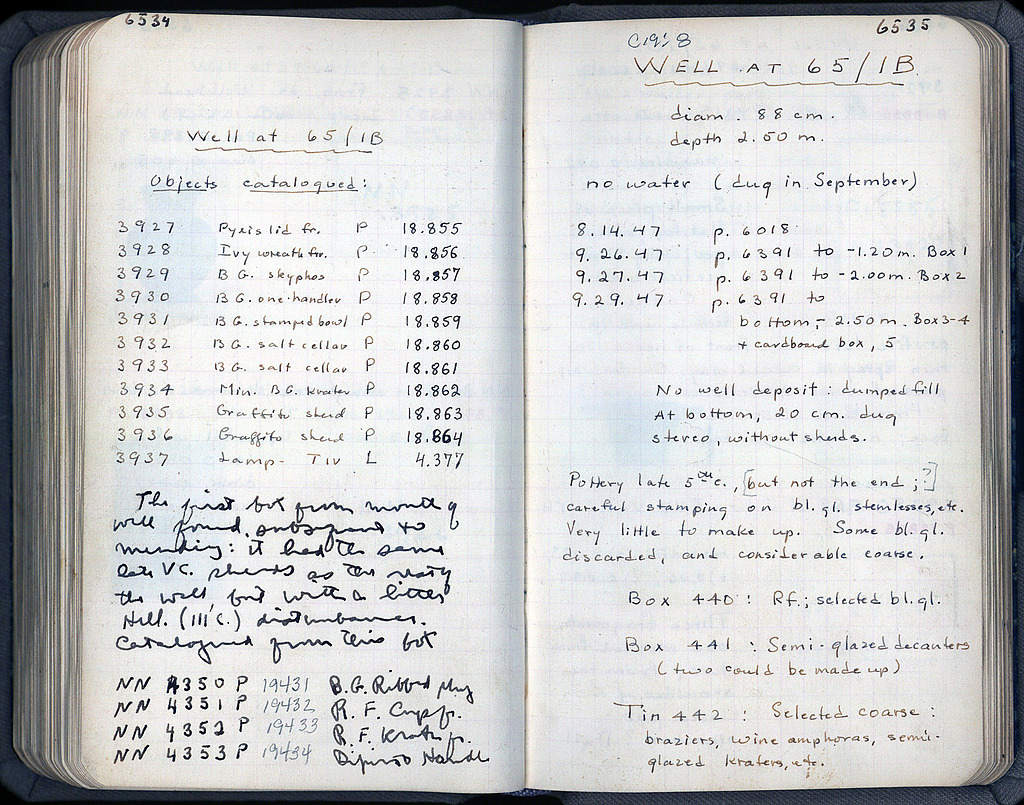 6534
Well at 65/1B
Objects catalogued:
3927 Pyxis lid fr. P 18.855
3928 Ivy wreath fr. P 18.856
3929 B G. skyphos P 18.857
3930 B G. one-handler P 18.858
3931 B G. stamped bowl P 18.859
3932 B G. salt cellar P 18.860
3933 B G. salt cellar P 18.861
3934 Min. B G. krater P 18.862
3935 Graffito sherd P 18.863
3936 Graffito sherd P 18.864
3937 Lamp - TIV L 4.377
The first bot from mouth of
well found, subsequent to
mending: it had the same
late V C. sherds as the rest of
the well but with a little
Hell. (III C.) disturbance.
Catalogued from this bot
NN 4350 P 19431 B.G. Ribbed
NN 4351 P 19432 R. F. Cup fr.
NN 4352 P 19433 R. F. Krater fr.
NN 4353 P 19434 Handle
6535
C 19:8
WELL AT 65/1B
diam. 88 cm.
depth 2.50 m.
no water (dug in September)
8.14.47 p. 6018
9.26.47 p. 6391 to -1.20 m. Box 1
9.27.47 p. 6391 to -2.00 m. Box 2
9.29.47 p. 6391 to
bottom, - 2.50 m. Box 3-4
+ cardboard box, 5
No well deposit: dumped fill
At bottom, 20 cm. dug
stereo, without sherds.
Pottery late 5th c., [but not the end;?]
careful stamping on bl. gl. stemlesses, etc.
Very little to make up. Some bl. gl.
discarded, and considerable coarse.
Box 440: Rf.; selected bl. gl.
Box 441: Semi-glazed decanters
(two could be made up)
Tin 442: Selected coarse:
braziers, wine amphoras, semi-
glazed kraters, etc.